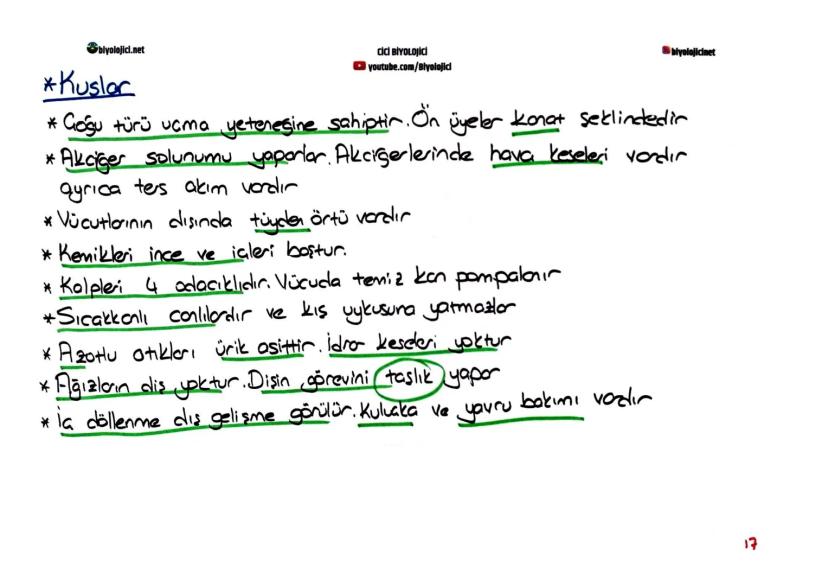 biyolojici.net
CİCİ BİYOLOJİCİ
youtube.com/Biyolojici
biyolojicinet
*Kuşlar
* Çoğu türü uçma yeteneğine sahiptir. Ön üyeler kanat şeklindedir
* Akciğer solunumu yaparlar. Akciğerlerinde hava keseleri vardır
ayrıca ters akım vardır
* Vücutlarının dışında tüyden örtü vardır
* Kemikleri ince ve içleri boştur.
* Kalpleri 4 odacıklıdır. Vücuda temiz kan pompalanır
*Sıcakkanlı canlılardır ve kış uykusuna yatmazlar
* Azotlu atıkları ürik asittir. İdrar keseleri yoktur
* Ağızların diş yoktur. Dişin görevini taşlık yapar
* İç döllenme dış gelişme görülür. Kuluçka ve yavru bakımı vardır
17